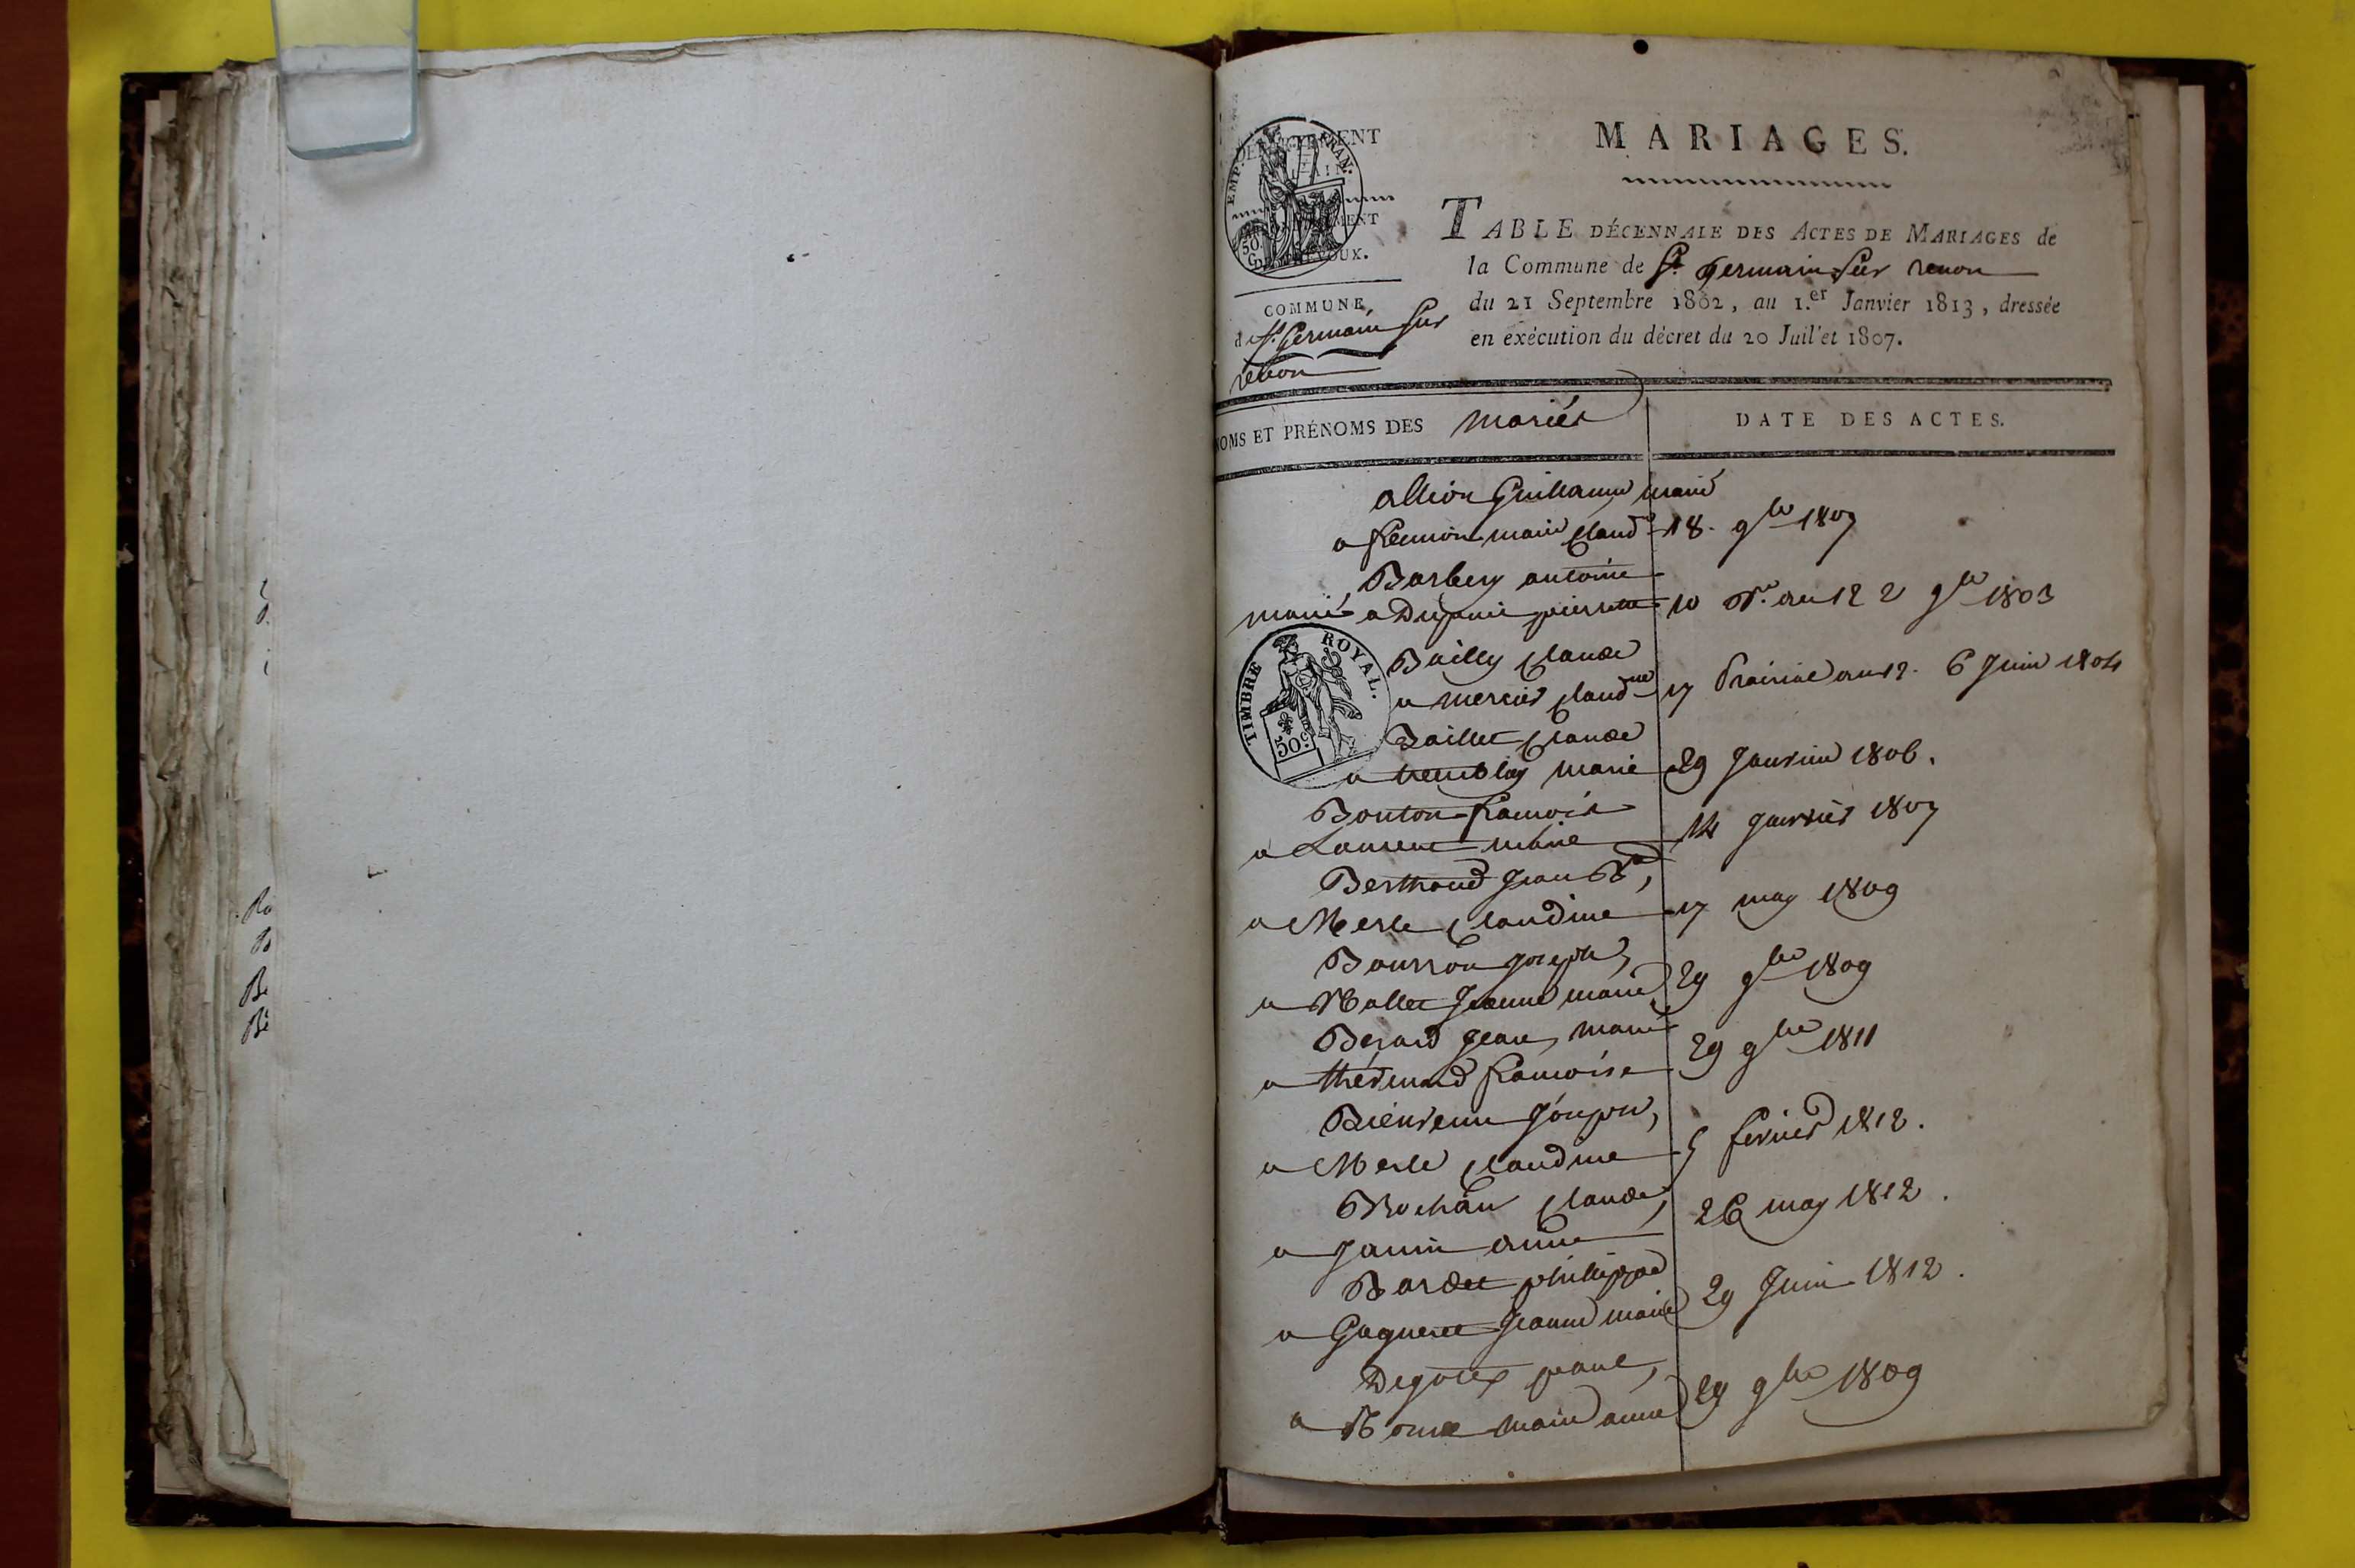 MARIAGES.
DÉPARTEMENT
DE L'AIN
EMP. FRAN.
50 C.
ARRONDISSEMENT
DE TRÉVOUX.
COMMUNE
d St. Germain sur
renon
TABLE DÉCENNALE DES ACTES DE MARIAGES de
la Commune de St. germain sur renon
du 21 Septembre 1802, au 1.er Janvier 1813, dressée
en exécution du décret du 20 Juillet 1807.
NOMS ET PRÉNOMS DES mariés
DATE DES ACTES.
allion Guillaume marié
a marie claude 18. 9bre 1807
Barbery antoine
marié a Dupuis pierrette 10 Bre. an 12 2 9bre 1803
TIMBRE ROYAL.
50 c.
Bailly claude
a mercier claudine 17 Prairial an 12. 6 Juin 1804
Baillet claude
a tremblay marie 29 Janvier 1806.
Bouton francois
a Laurent marie 14 janvier 1807
Berthaud jean Bte,
a Merle claudine 17 may 1809
Bourron joseph,
a Mallet jeanne marie 29 9bre 1809
Berard jean, marié
a thévenard francoise 29 9bre 1811
Bienvenu joseph,
a Merle claudine 5 fevrier 1812.
Brochan claude,
a Janin anne 26 may 1812.
Bardet philippe
a Gagneret jeanne marie 29 Juin 1812.
Degotex paul,
a marie anne 29 9bre 1809
Ro
B
Be
Be